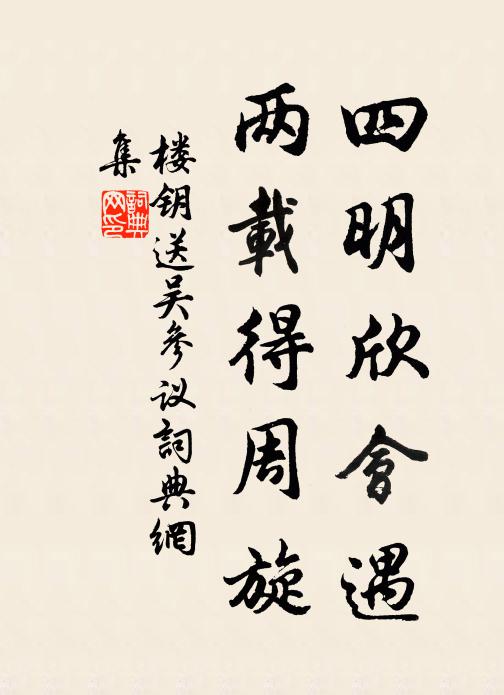 四明欣會遇
两載得周旋
楼钥送吴参议詞典網
集
詞典
网印